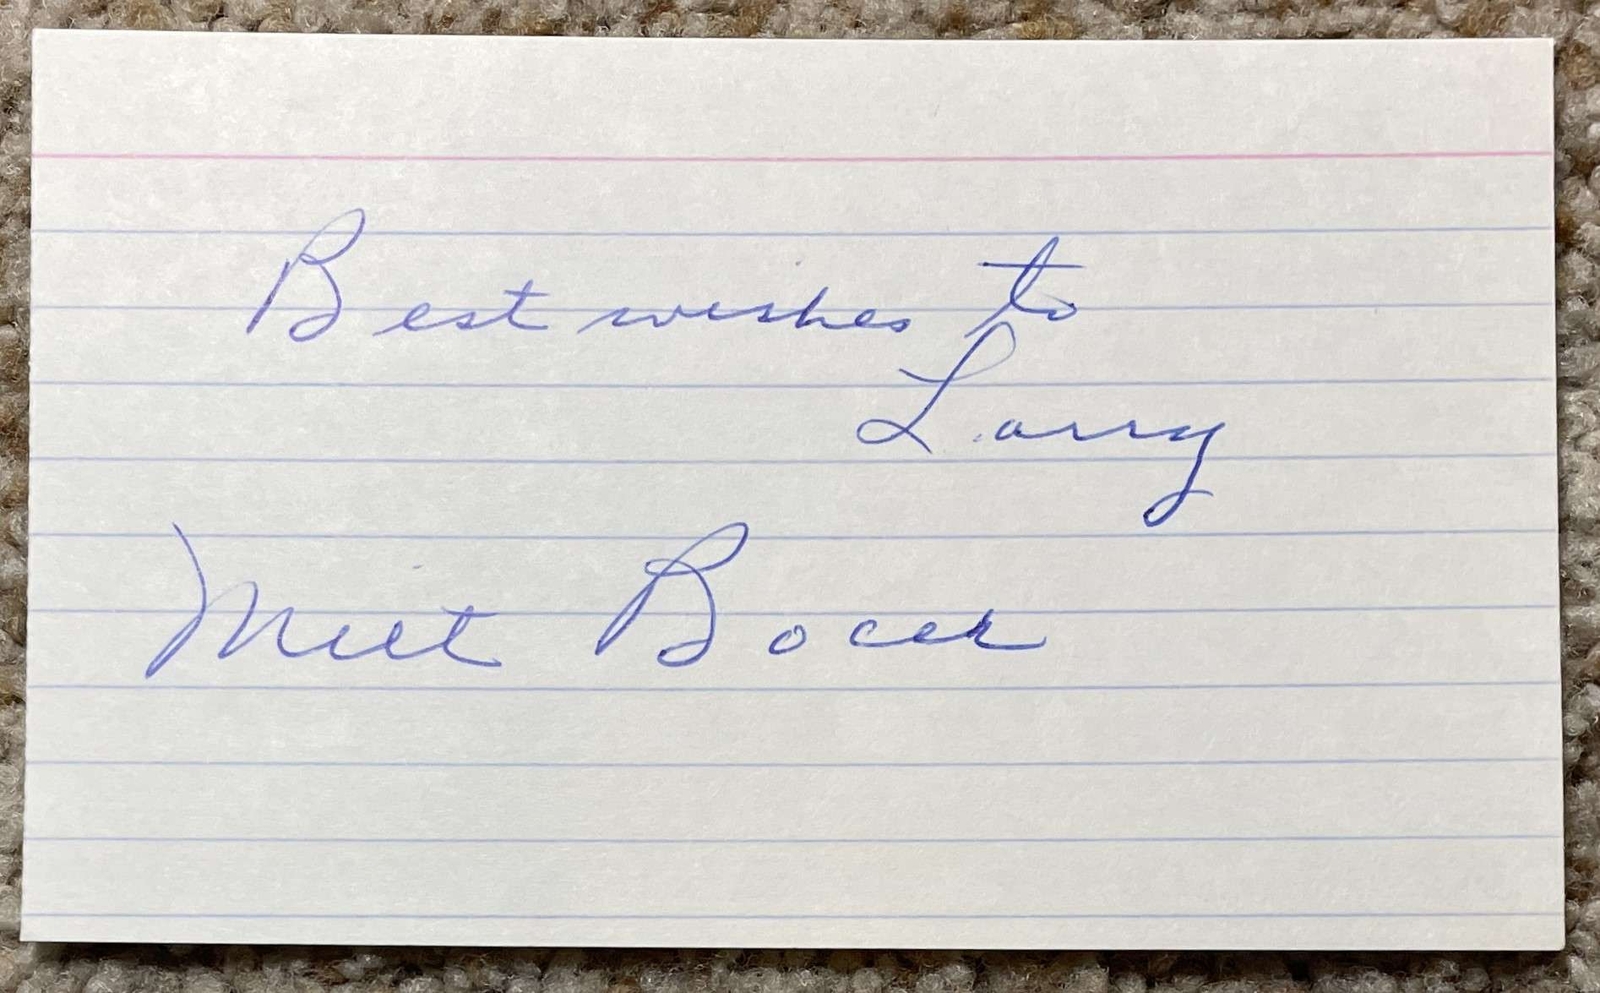 Best wishes to
Larry
Milt Bocek